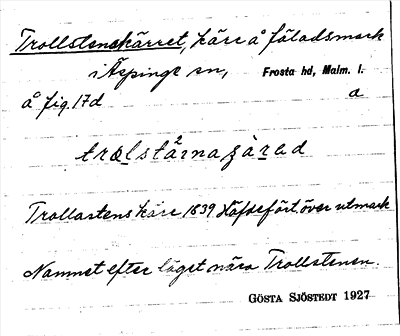 Trollstenskärret, kärr å fäladsmark
i Äspinge sn, Frosta hd, Malm. l.
å fig. 17d a
Trollastens kärr 1839 Häfdefört. över utmark
Namnet efter läget nära Trollstenen.
GÖSTA SJÖSTEDT 1927